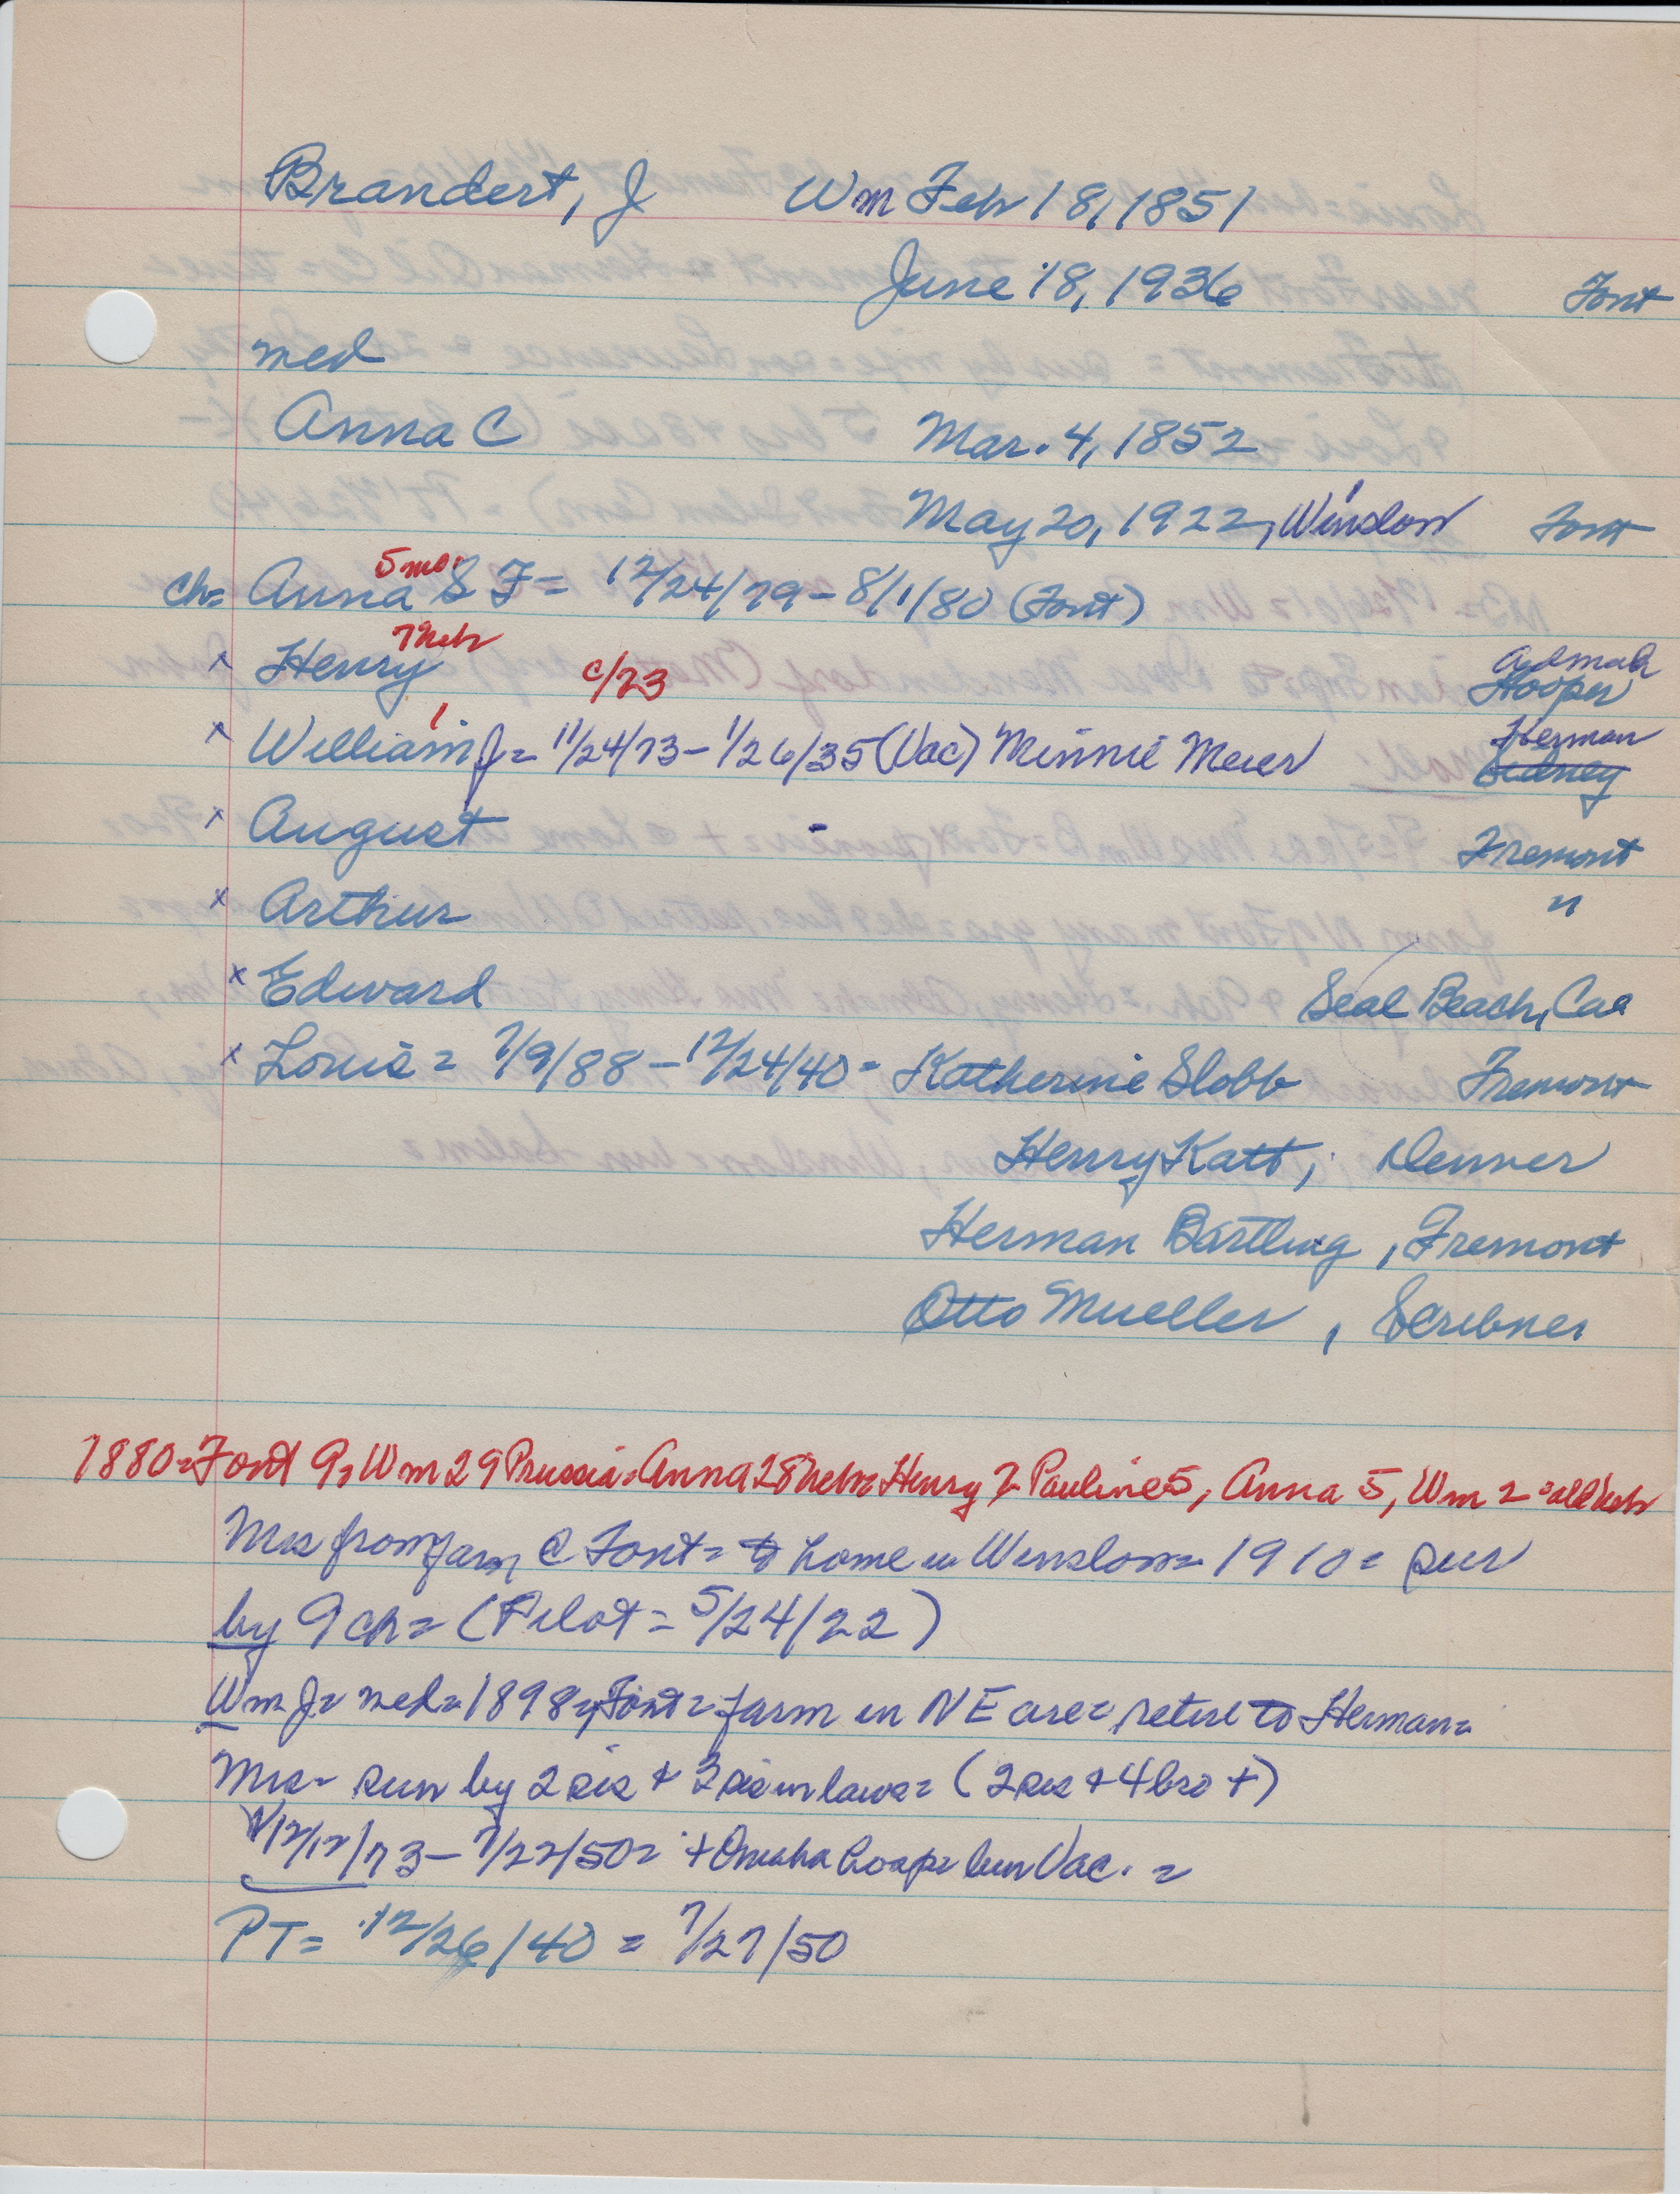 Brandert, J Wm Feb 18, 1851
June 18, 1936 Font
med
Anna C Mar. 4, 1852
May 20, 1922, Winslow Font
5 mo.
Ch= Anna S F= 12/24/79 - 8/1/80 (Font)
7 Neb
x Henry c/73 Admah
Hooper
1
x William J= 11/24/73 - 1/26/35 (Vac) Minnie Meier Herman
Sidney
x August - Fremont
x Arthur "
x Edward Seal Beach, Cal
x Louis = 7/9/88 - 12/24/40 = Katherine Slobb Fremont
Henry Katt, Denver
Herman Bartling, Fremont
Otto Mueller, Scribner
1880=Font 9, Wm 29 Prussia= Anna 28 Neb= Henry 7 Pauline 5, Anna 5, Wm 2 = all Neb
Mrs from farm @ Font= to home in Winslow= 1910= sur
by 9 ch= (Pilot= 5/24/22)
Wm J= med= 1898= Font= farm in NE are= retire to Herman=
Mrs= sur by 2 sis + 3 sis in laws= (2 sis + 4 bro +)
12/12/73 - 7/22/50= + Omaha hosp= bur Vac. =
PT= 12/26/40 = 7/27/50